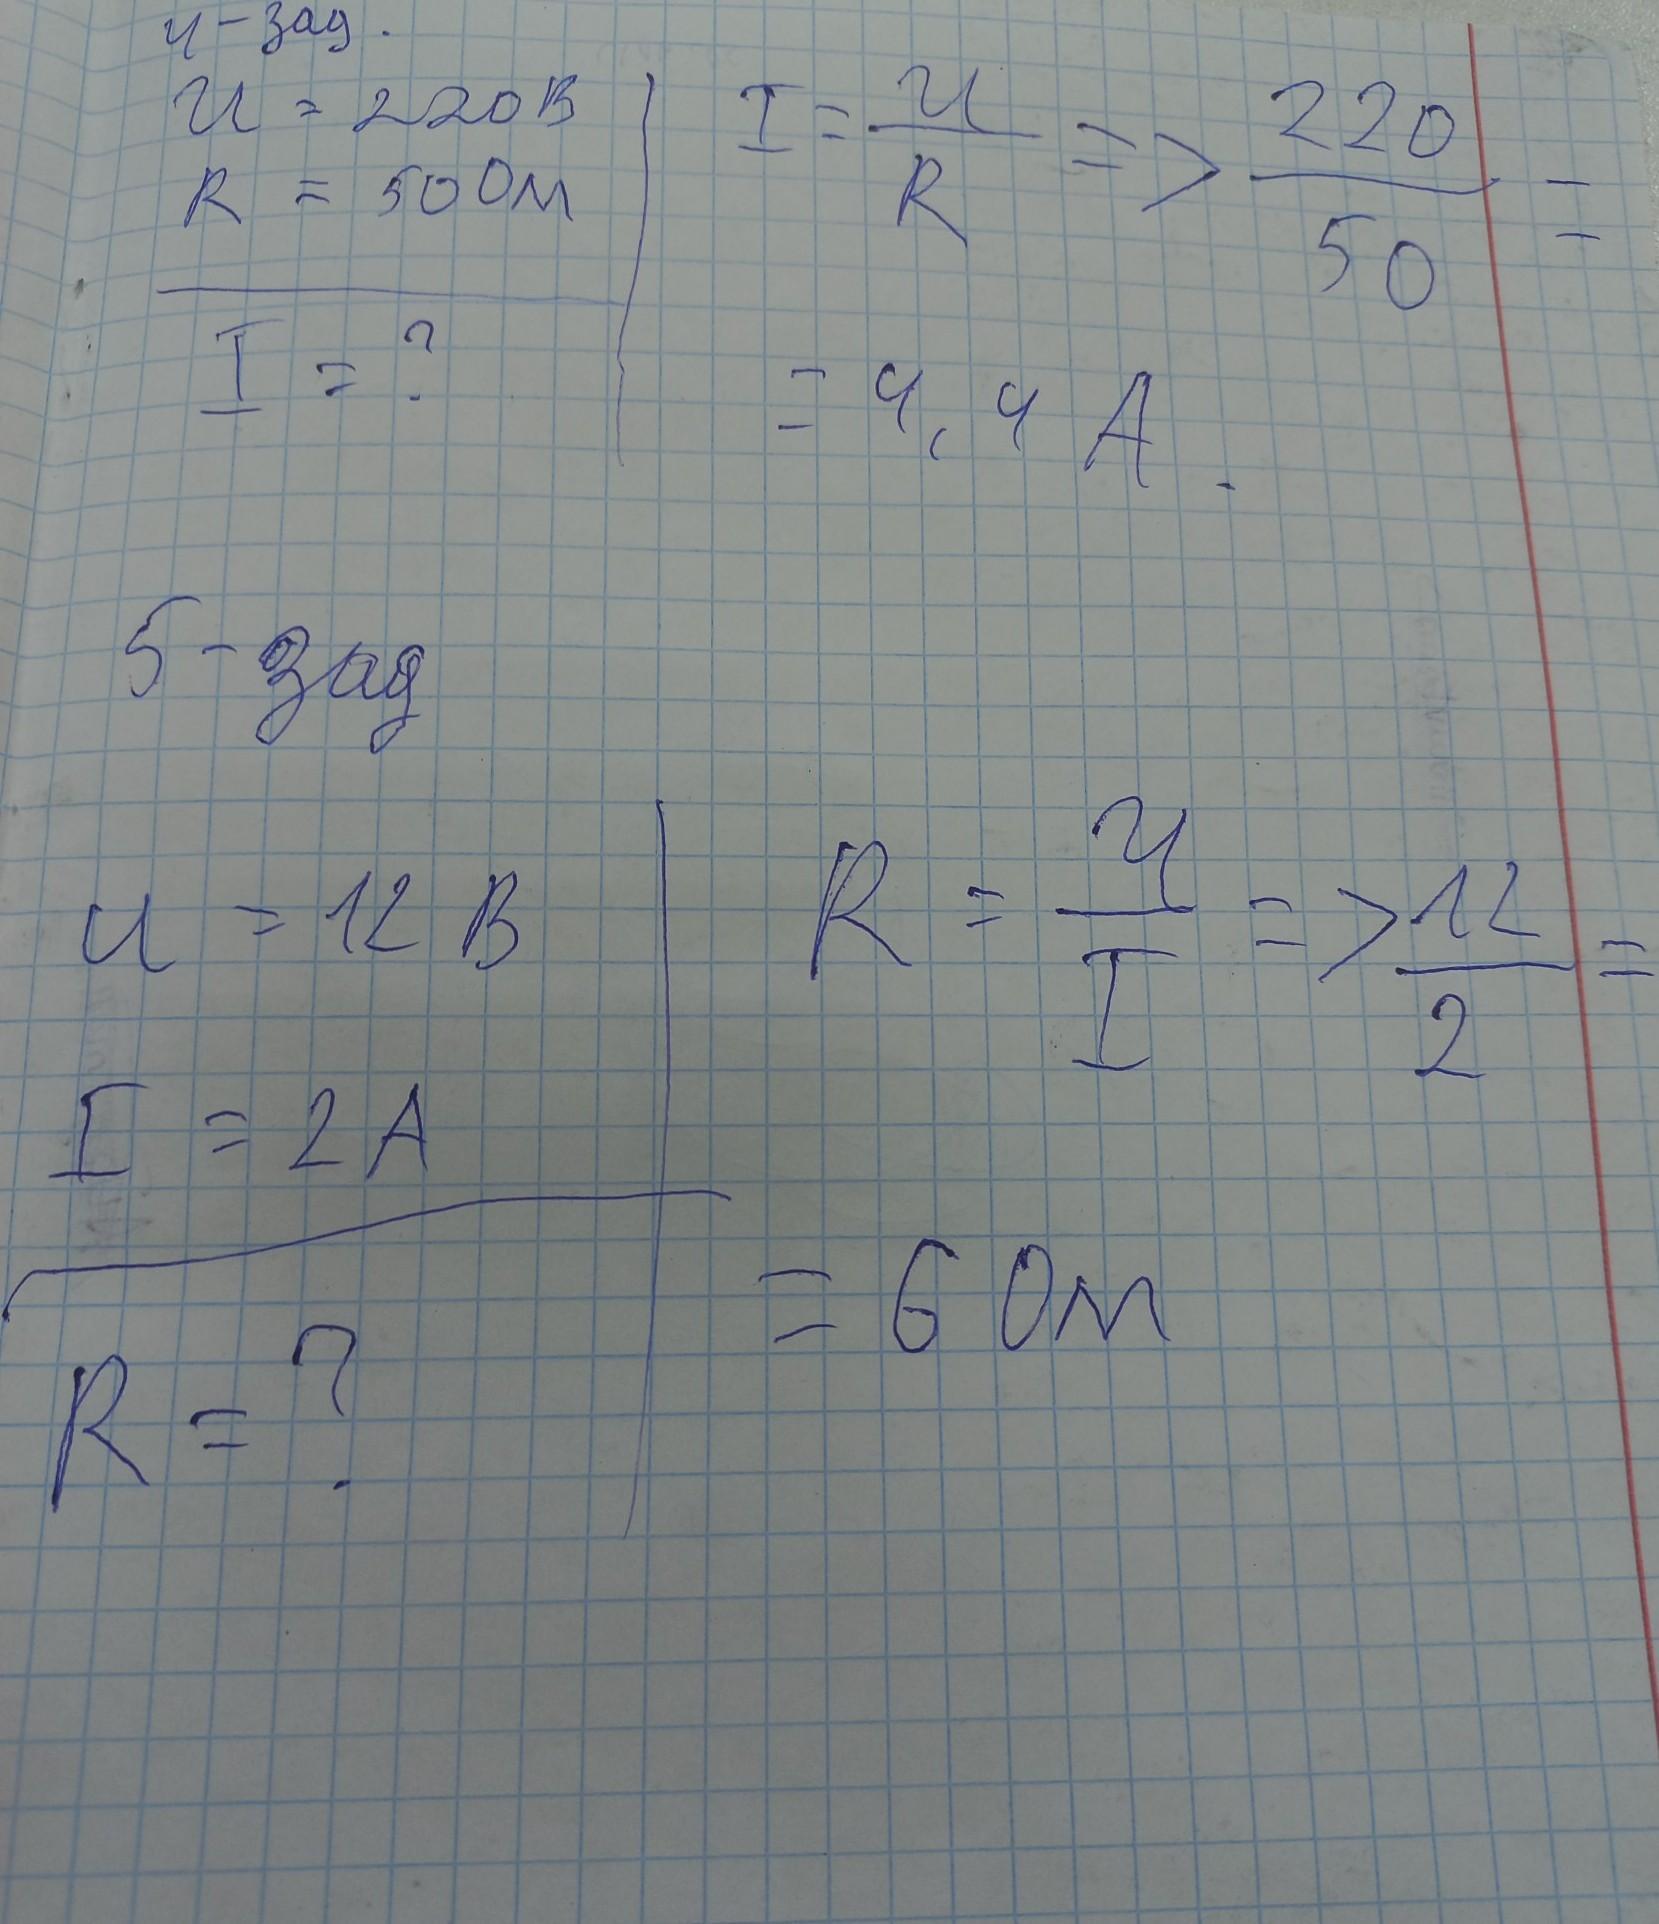 4-зад.
U = 220В
R = 50 Ом
I = ?
I = U/R => 220/50 =
= 4,4 А.
5-зад
U = 12 В
I = 2А
R = ?
R = U/I => 12/2 =
= 6 Ом